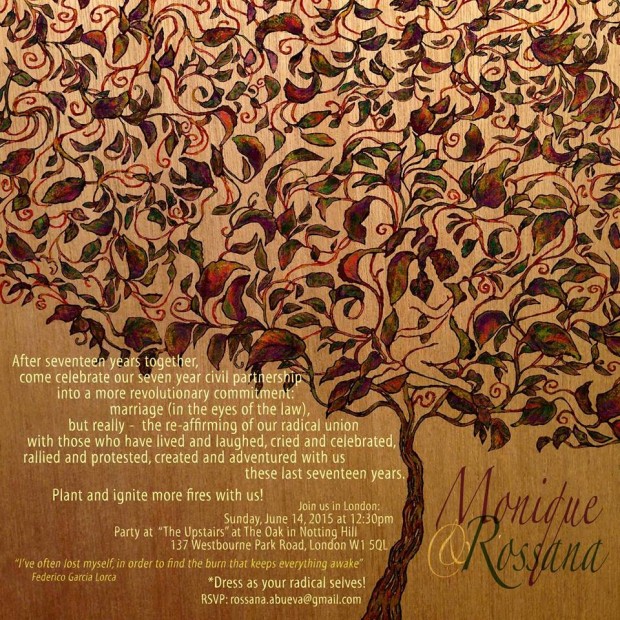 After seventeen years together,
come celebrate our seven year civil partnership
into a more revolutionary commitment:
marriage (in the eyes of the law),
but really - the re-affirming of our radical union
with those who have lived and laughed, cried and celebrated,
rallied and protested, created and adventured with us
these last seventeen years.
Plant and ignite more fires with us!
Join us in London:
Sunday, June 14, 2015 at 12:30pm
Party at "The Upstairs" at The Oak in Notting Hill
137 Westbourne Park Road, London W1 5QL
"I've often lost myself, in order to find the burn that keeps everything awake"
Federico García Lorca
*Dress as your radical selves!
RSVP: rossana.abueva@gmail.com
Monique
& Rossana